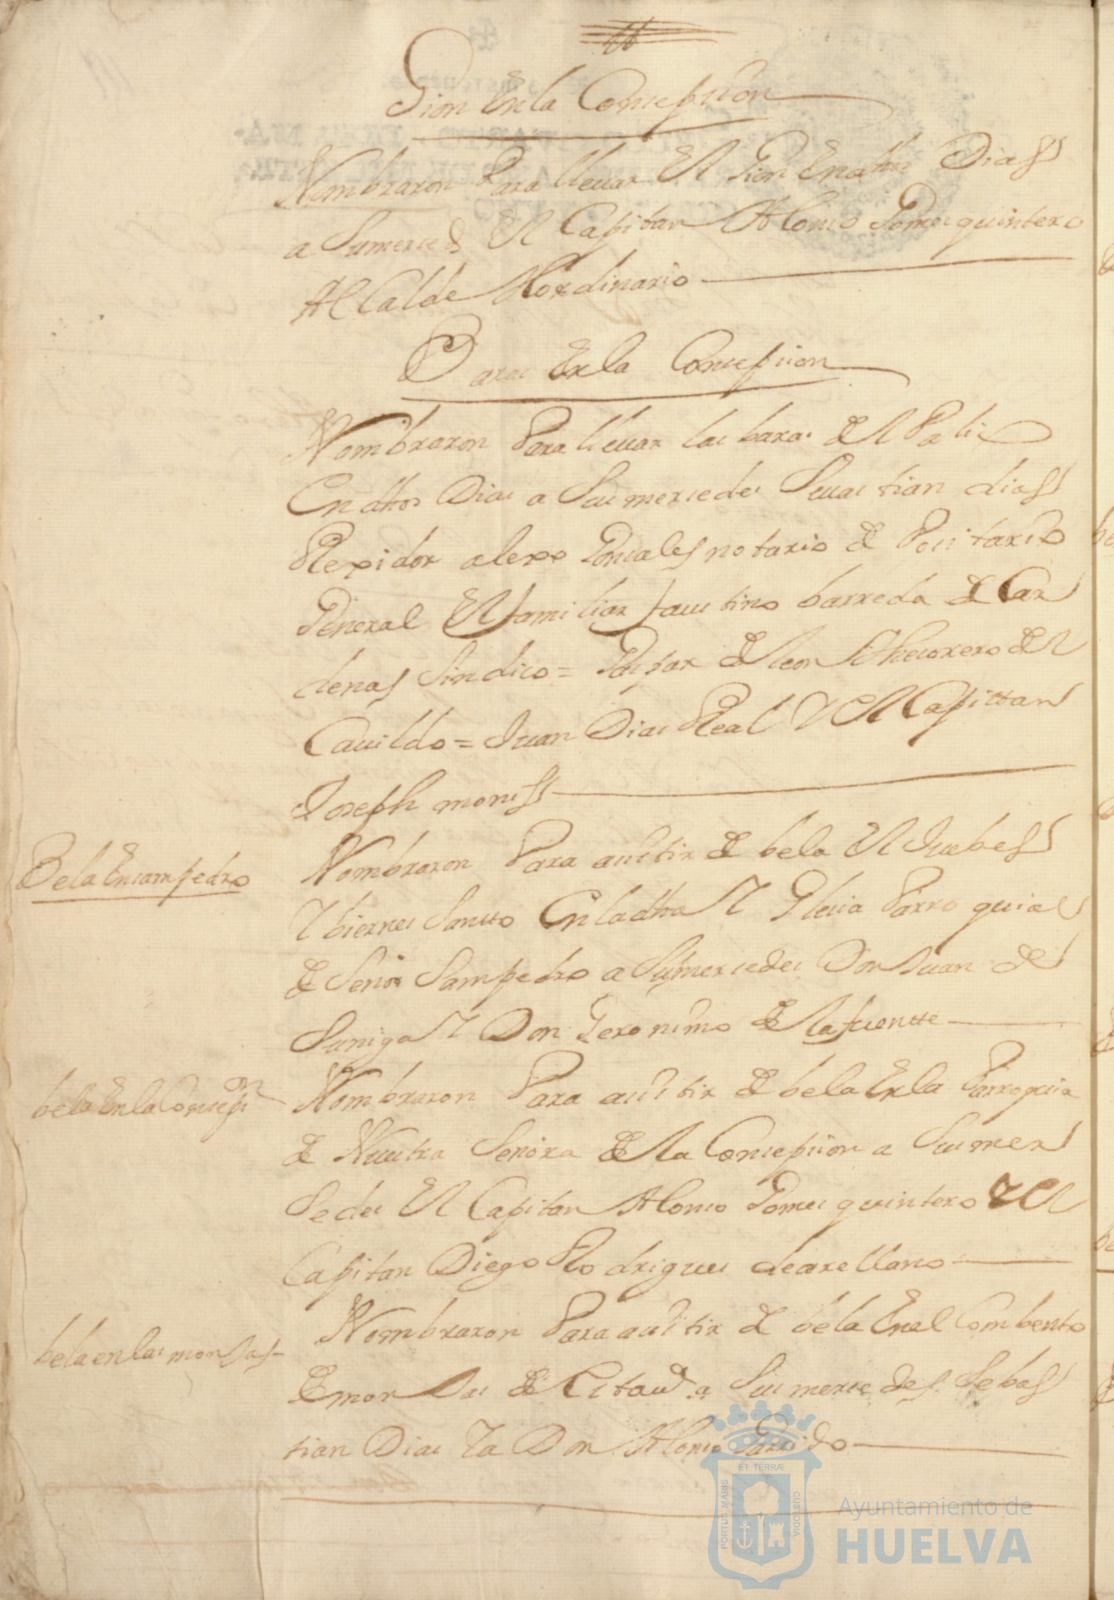 Gion En la Consepsion
Nombraron Para lleuar El Gion En dhos Dias
a Sumersed El Capitan Alonso Gomes quintero
Alcalde Hordinario
Baras En la Consepsion
Nombraron Para lleuar las baras del Palio
En dhos Dias a Sus mersedes Seuastian dias
Rexidor alexo Gonsales notario depositario
General El familiar faustino barreda de Car
denas sindico = Gaspar de leon thesorero del
Cauildo = Juan Dias Real Y El Capittan
Joseph monis
Bela En sampedro
Nombraron Para asistir de bela El Juebes
Y biernes Santto En la dha Yglesia Parroquial
de Señor Sampedro a Sus mersedes Don Juan de
Suniga Y Don Geronimo de la fuentte
bela En la Consepsn
Nombraron Para asistir de bela En la Parroquia
de Nuestra Señora de la Consepsion a Sus mer
sedes El Capitan Alonso Gomes quintero Y El
Capitan Diego Rodrigues de arellano
bela en las monjas
Nombraron Para asistir de bela En el Combento
de monjas de esta uª a Sus mersedes Sebas
tian Dias Ya Don Alonso Garrido
PORTUS MARIS
ET TERRÆ
CUSTODIA
Ayuntamiento de
HUELVA